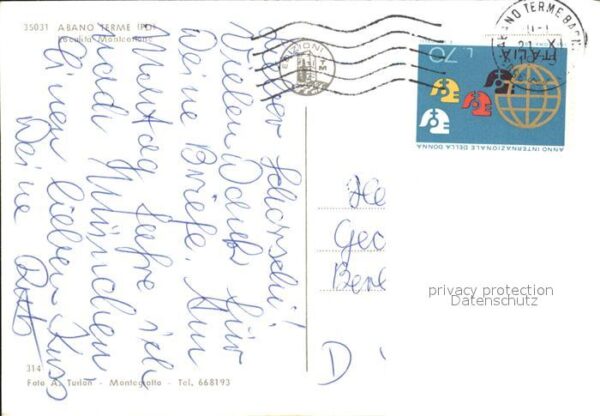 35031 ABANO TERME (PD)
Località Monteortone
Lieber Schorschi!
Vielen Dank für
Deine Briefe. Am
Montag fahre ich
nach München
Einen lieben Kuss
Deine
EDIZIONI
ABANO TERME
ITALIA
L. 70
ANNO INTERNAZIONALE DELLA DONNA
He
Geo
Bere
D
privacy protection
Datenschutz
314
Foto A. Turlon - Montegrotto - Tel. 668193